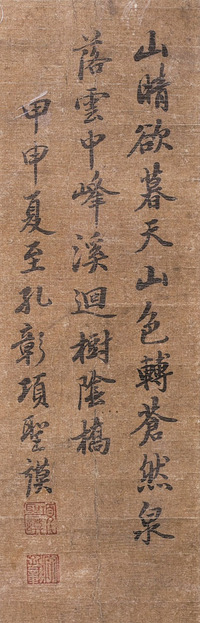 山晴欲暮天山色轉蒼然泉
落雲中峰溪迴樹陰橋
甲申夏至孔彰項聖謨